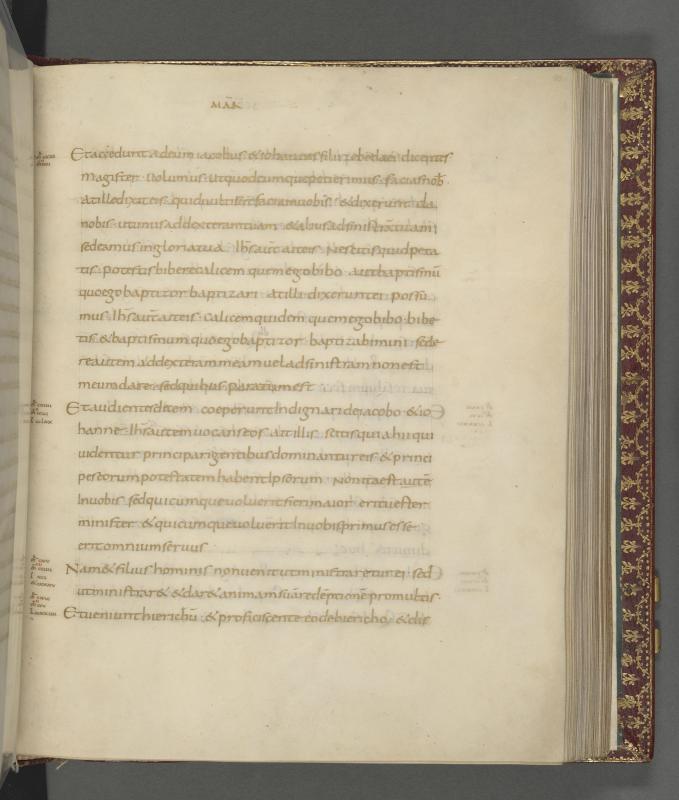 MAR
Et accedunt ad eum iacobus & iohannes filii zebedaei dicentes
magister uolumus ut quodcumque petierimus facias nob̄
at ille dixit eis quid uultis ut faciam uobis & dixerunt da
nobis ut unus ad dexteram tuam & alius ad sinistram tuam
sedeamus in gloria tua Ih̄s aūt ait eis Nescitis quid peta
tis potestis bibere calicem quem ego bibo aut baptismū
quo ego baptizor baptizari at illi dixerunt ei possu
mus Ih̄s aūt ait eis calicem quidem quem ego bibo bibe
tis & baptismum quo ego baptizor baptizabimini sede
re autem ad dexteram meam uel ad sinistram non est
meum dare sed quibus paratum est
Et audientes decem coeperunt Indignari de iacobo & io
hanne Ih̄s autem uocans eos ait illis scitis quia hi qui
uidentur principari gentibus dominantur eis & princi
pes eorum potestatem habent Ipsorum Non ita est autē
In uobis sed quicumque uoluerit fieri maior erit uester
minister & quicumque uoluerit In uobis primus esse
erit omnium seruus
Nam & filius hominis non uenit ut ministraretur ei sed
ut ministraret & daret animam suā redēptionē pro multis
Et ueniunt hierichū & proficiscente eo de hiericho & dis